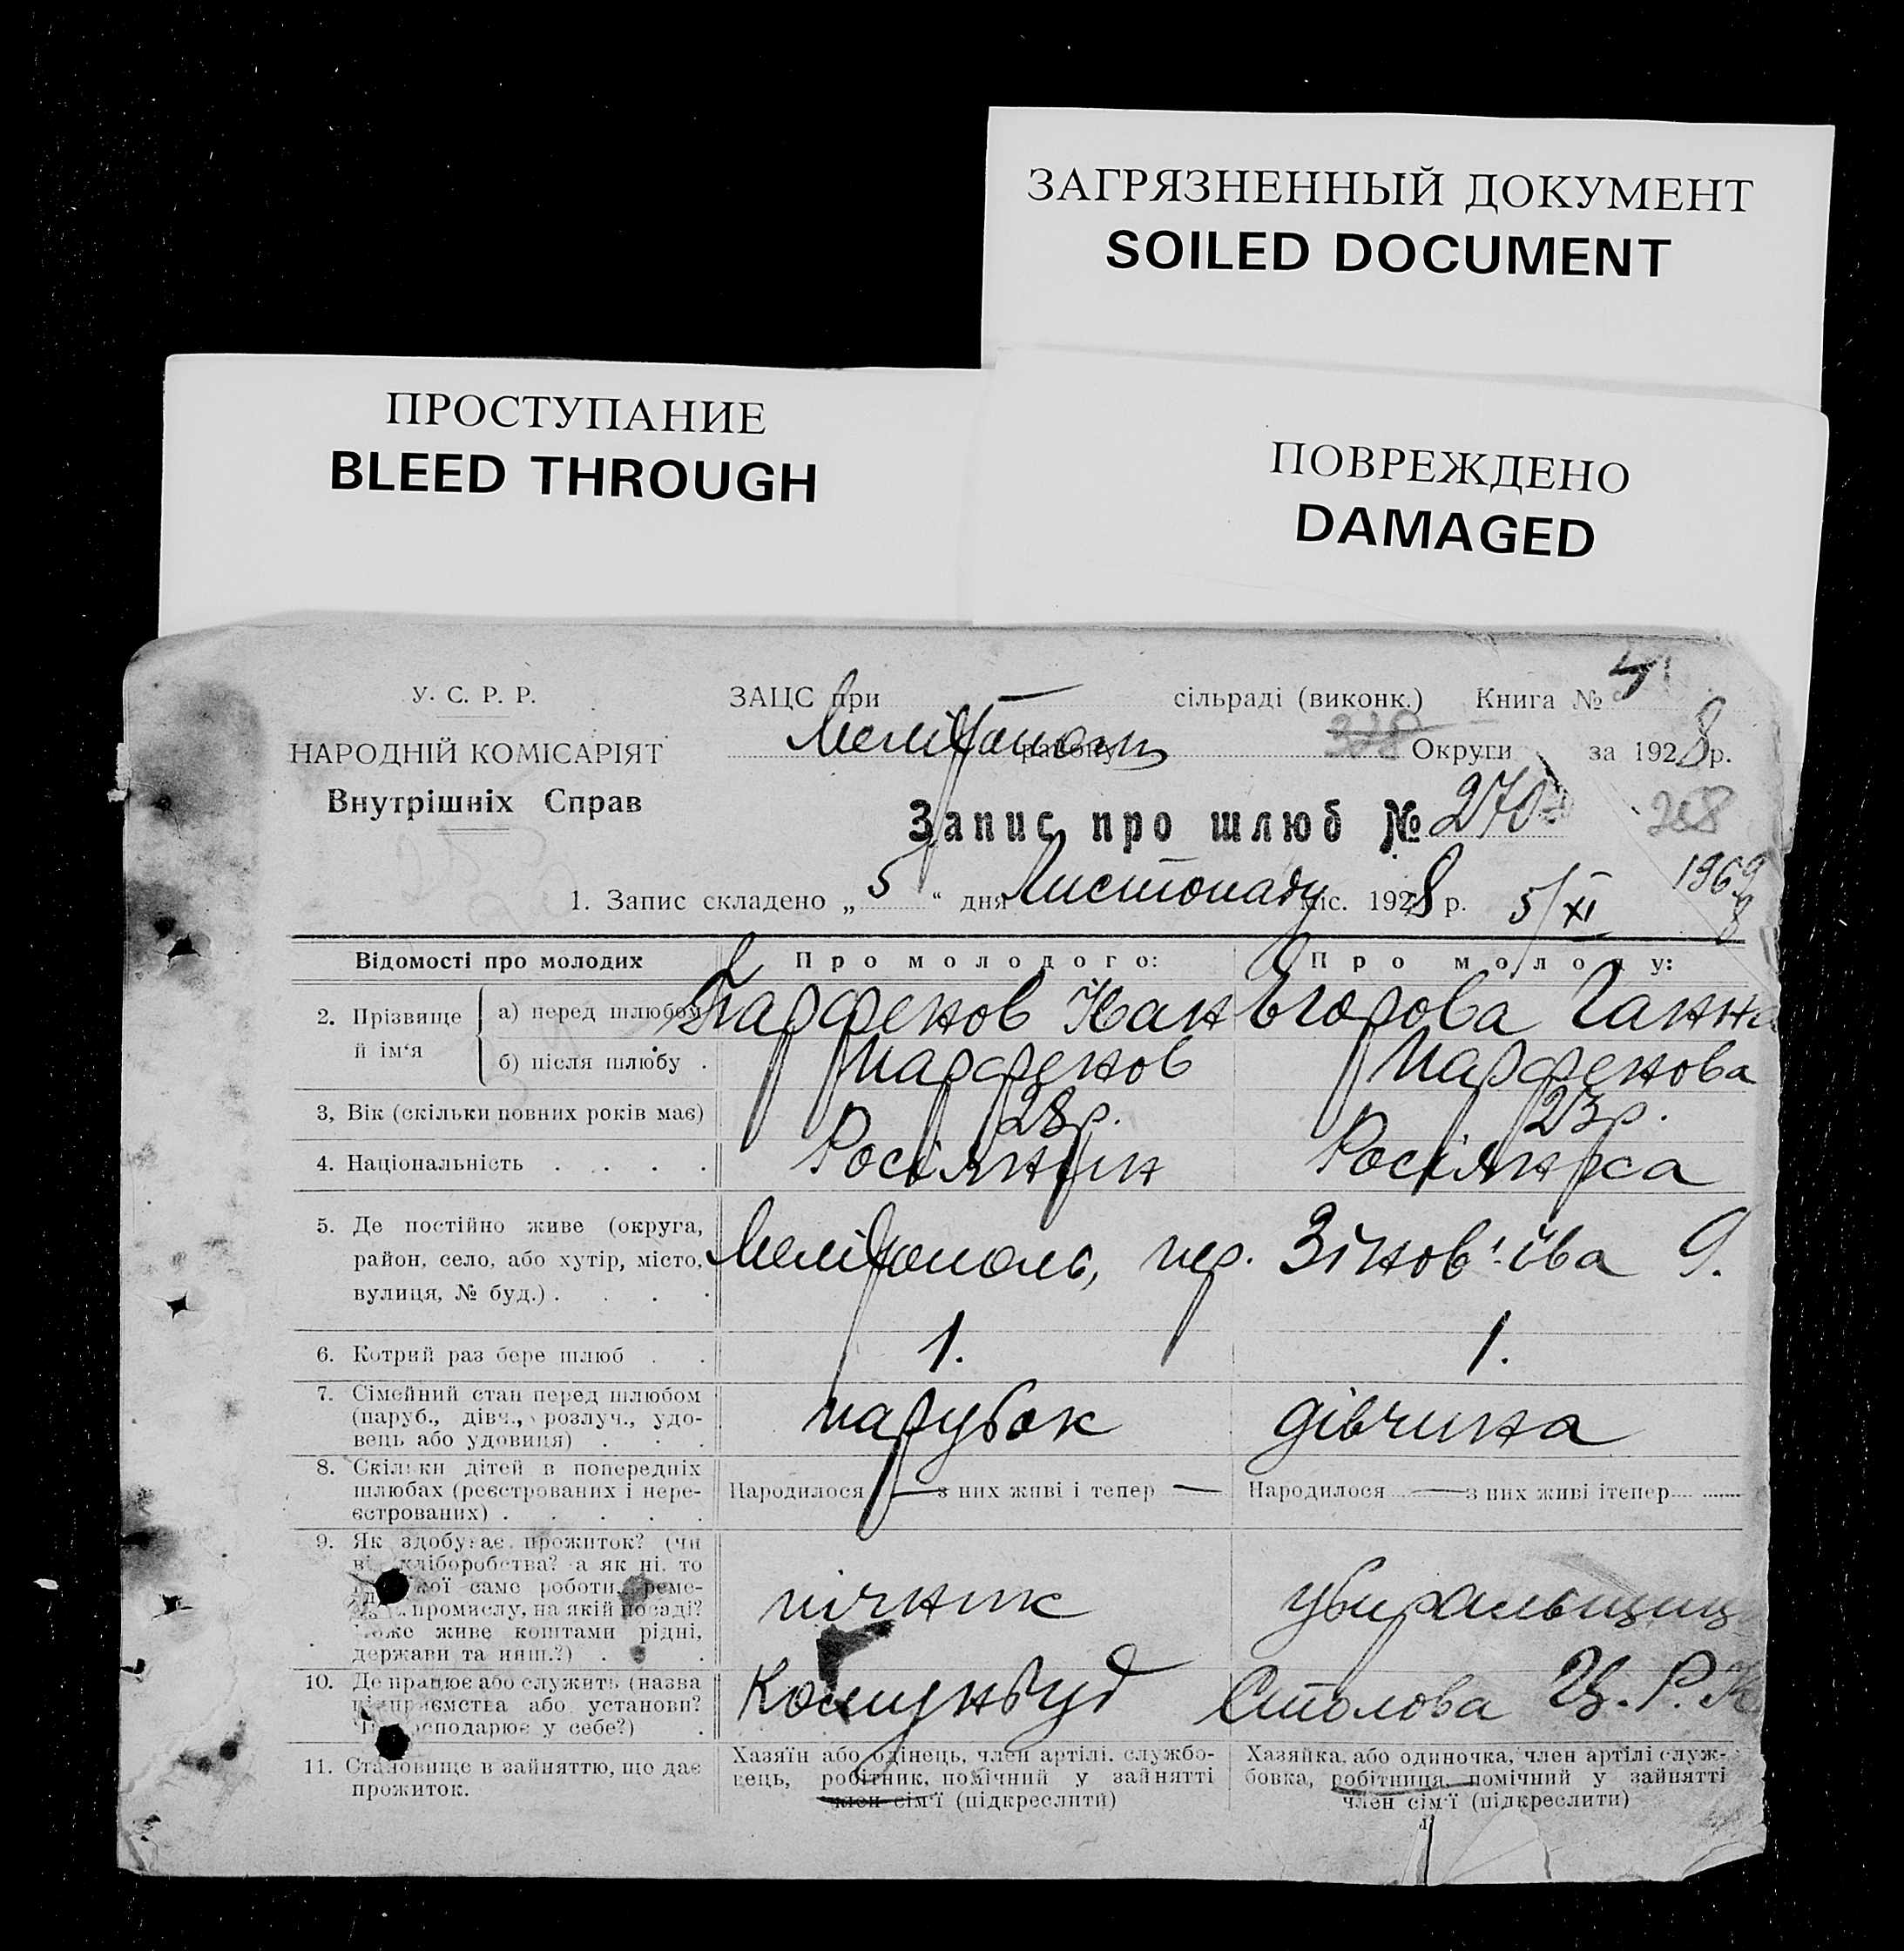 ЗАГРЯЗНЕННЫЙ ДОКУМЕНТ
SOILED DOCUMENT
ПРОСТУПАНИЕ
BLEED THROUGH
ПОВРЕЖДЕНО
DAMAGED
У. С. Р. Р.
НАРОДНІЙ КОМІСАРІЯТ
Внутрішніх Справ
ЗАЦС при — сільраді (виконк.) Книга №
району Округи за 1928 р.
Запис про шлюб № 270 268
1. Запис складено „ 5 “ дня Листопаду міс. 1928 р. 5/XI
Відомості про молодих Про молодого: Про молоду:
2. Прізвище й ім‘я
а) перед шлюбом Парфенов Іван Єгорова Ганна
б) після шлюбу . Парфенов Парфенова
3, Вік (скільки повних років має) 28 р. 23 р.
4. Національність . . . . Росіянин Росіянка
5. Де постійно живе (округа,
район, село, або хутір, місто,
вулиця, № буд.) . . . .
Мелітополь, пер. Зінов'їва 9.
6. Котрий раз бере шлюб . . 1. 1.
7. Сімейний стан перед шлюбом
(паруб., дівч., розлуч., удо-
вець або удовиця) . . .
парубок дівчина
8. Скільки дітей в попередніх
шлюбах (реєстрованих і нере-
єстрованих) . . . . .
Народилося — з них живі і тепер — Народилося — з них живі і тепер
9. Як здобуває прожиток? (чи
від хліборобства? а як ні, то
кої саме роботи, реме-
промислу, на якій посаді?
Може живе коштами рідні,
держави та инш.?) . . .
пічник убиральщиц
10. Де працює або служить (назва
підприємства або установи?
Чи господарює у себе?) .
Комунбуд Столова Ц. Р. К
11. Становище в зайняттю, що дає
прожиток.
Хазяїн або одінець, член артілі, службо-
вець, робітник, помічний у зайнятті
член сім'ї (підкреслити)
Хазяйка, або одиночка, член артілі служ-
бовка, робітниця, помічний у зайнятті
член сім'ї (підкреслити)